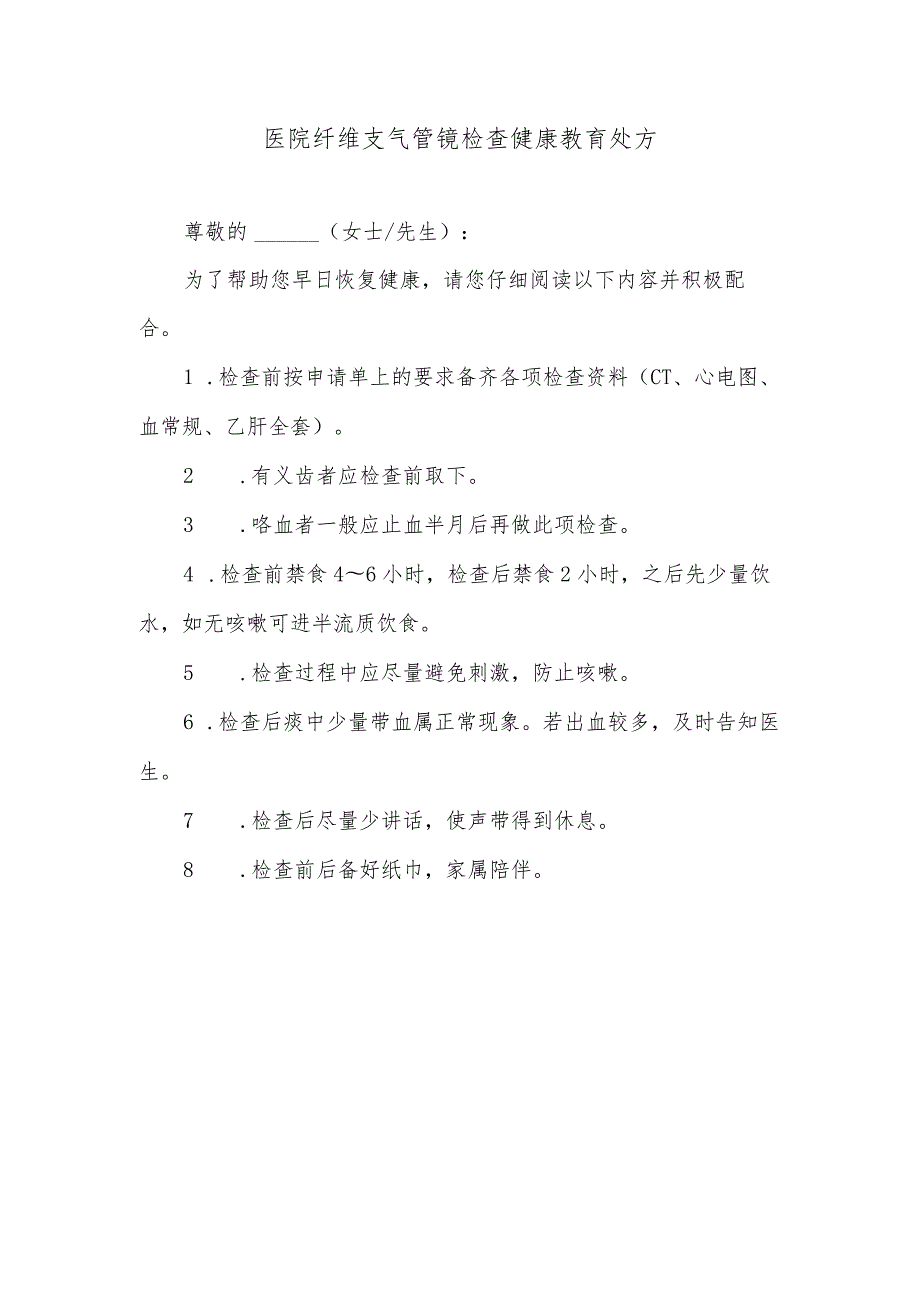 医院纤维支气管镜检查健康教育处方
尊敬的______（女士/先生）：
为了帮助您早日恢复健康，请您仔细阅读以下内容并积极配
合。
1 .检查前按申请单上的要求备齐各项检查资料（CT、心电图、
血常规、乙肝全套）。
2 .有义齿者应检查前取下。
3 .咯血者一般应止血半月后再做此项检查。
4 .检查前禁食4～6小时，检查后禁食2小时，之后先少量饮
水，如无咳嗽可进半流质饮食。
5 .检查过程中应尽量避免刺激，防止咳嗽。
6 .检查后痰中少量带血属正常现象。若出血较多，及时告知医
生。
7 .检查后尽量少讲话，使声带得到休息。
8 .检查前后备好纸巾，家属陪伴。